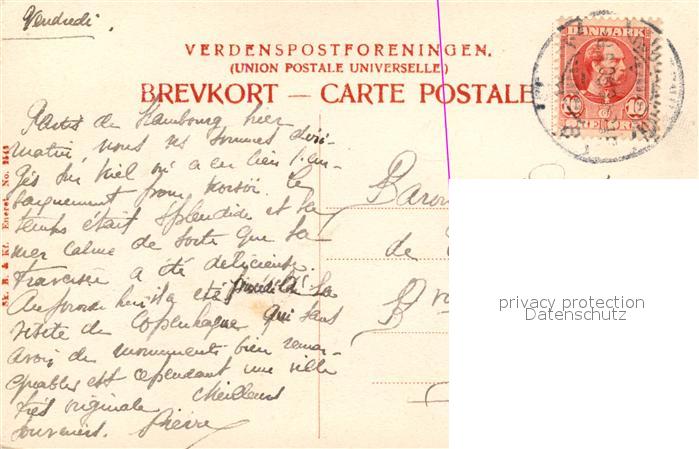 Vendredi.
VERDENSPOSTFORENINGEN.
(UNION POSTALE UNIVERSELLE)
BREVKORT — CARTE POSTALE
DANMARK
10 10
Partis de Hambourg hier
matin, nous ns sommes diri-
gés sur Kiel où a eu lieu l'em-
barquement pour Korsör. Le
temps était splendide et la
mer calme de sorte que la
traversée a été délicieuse.
Aujourd'hui il a été la
visite de Copenhague qui sans
avoir de monuments bien remar-
quables est cependant une ville
très originale Meilleurs
souvenirs. Pierre
Baron
de
Br
Sk. B. & Kf. Eneret. No.
privacy protection
Datenschutz